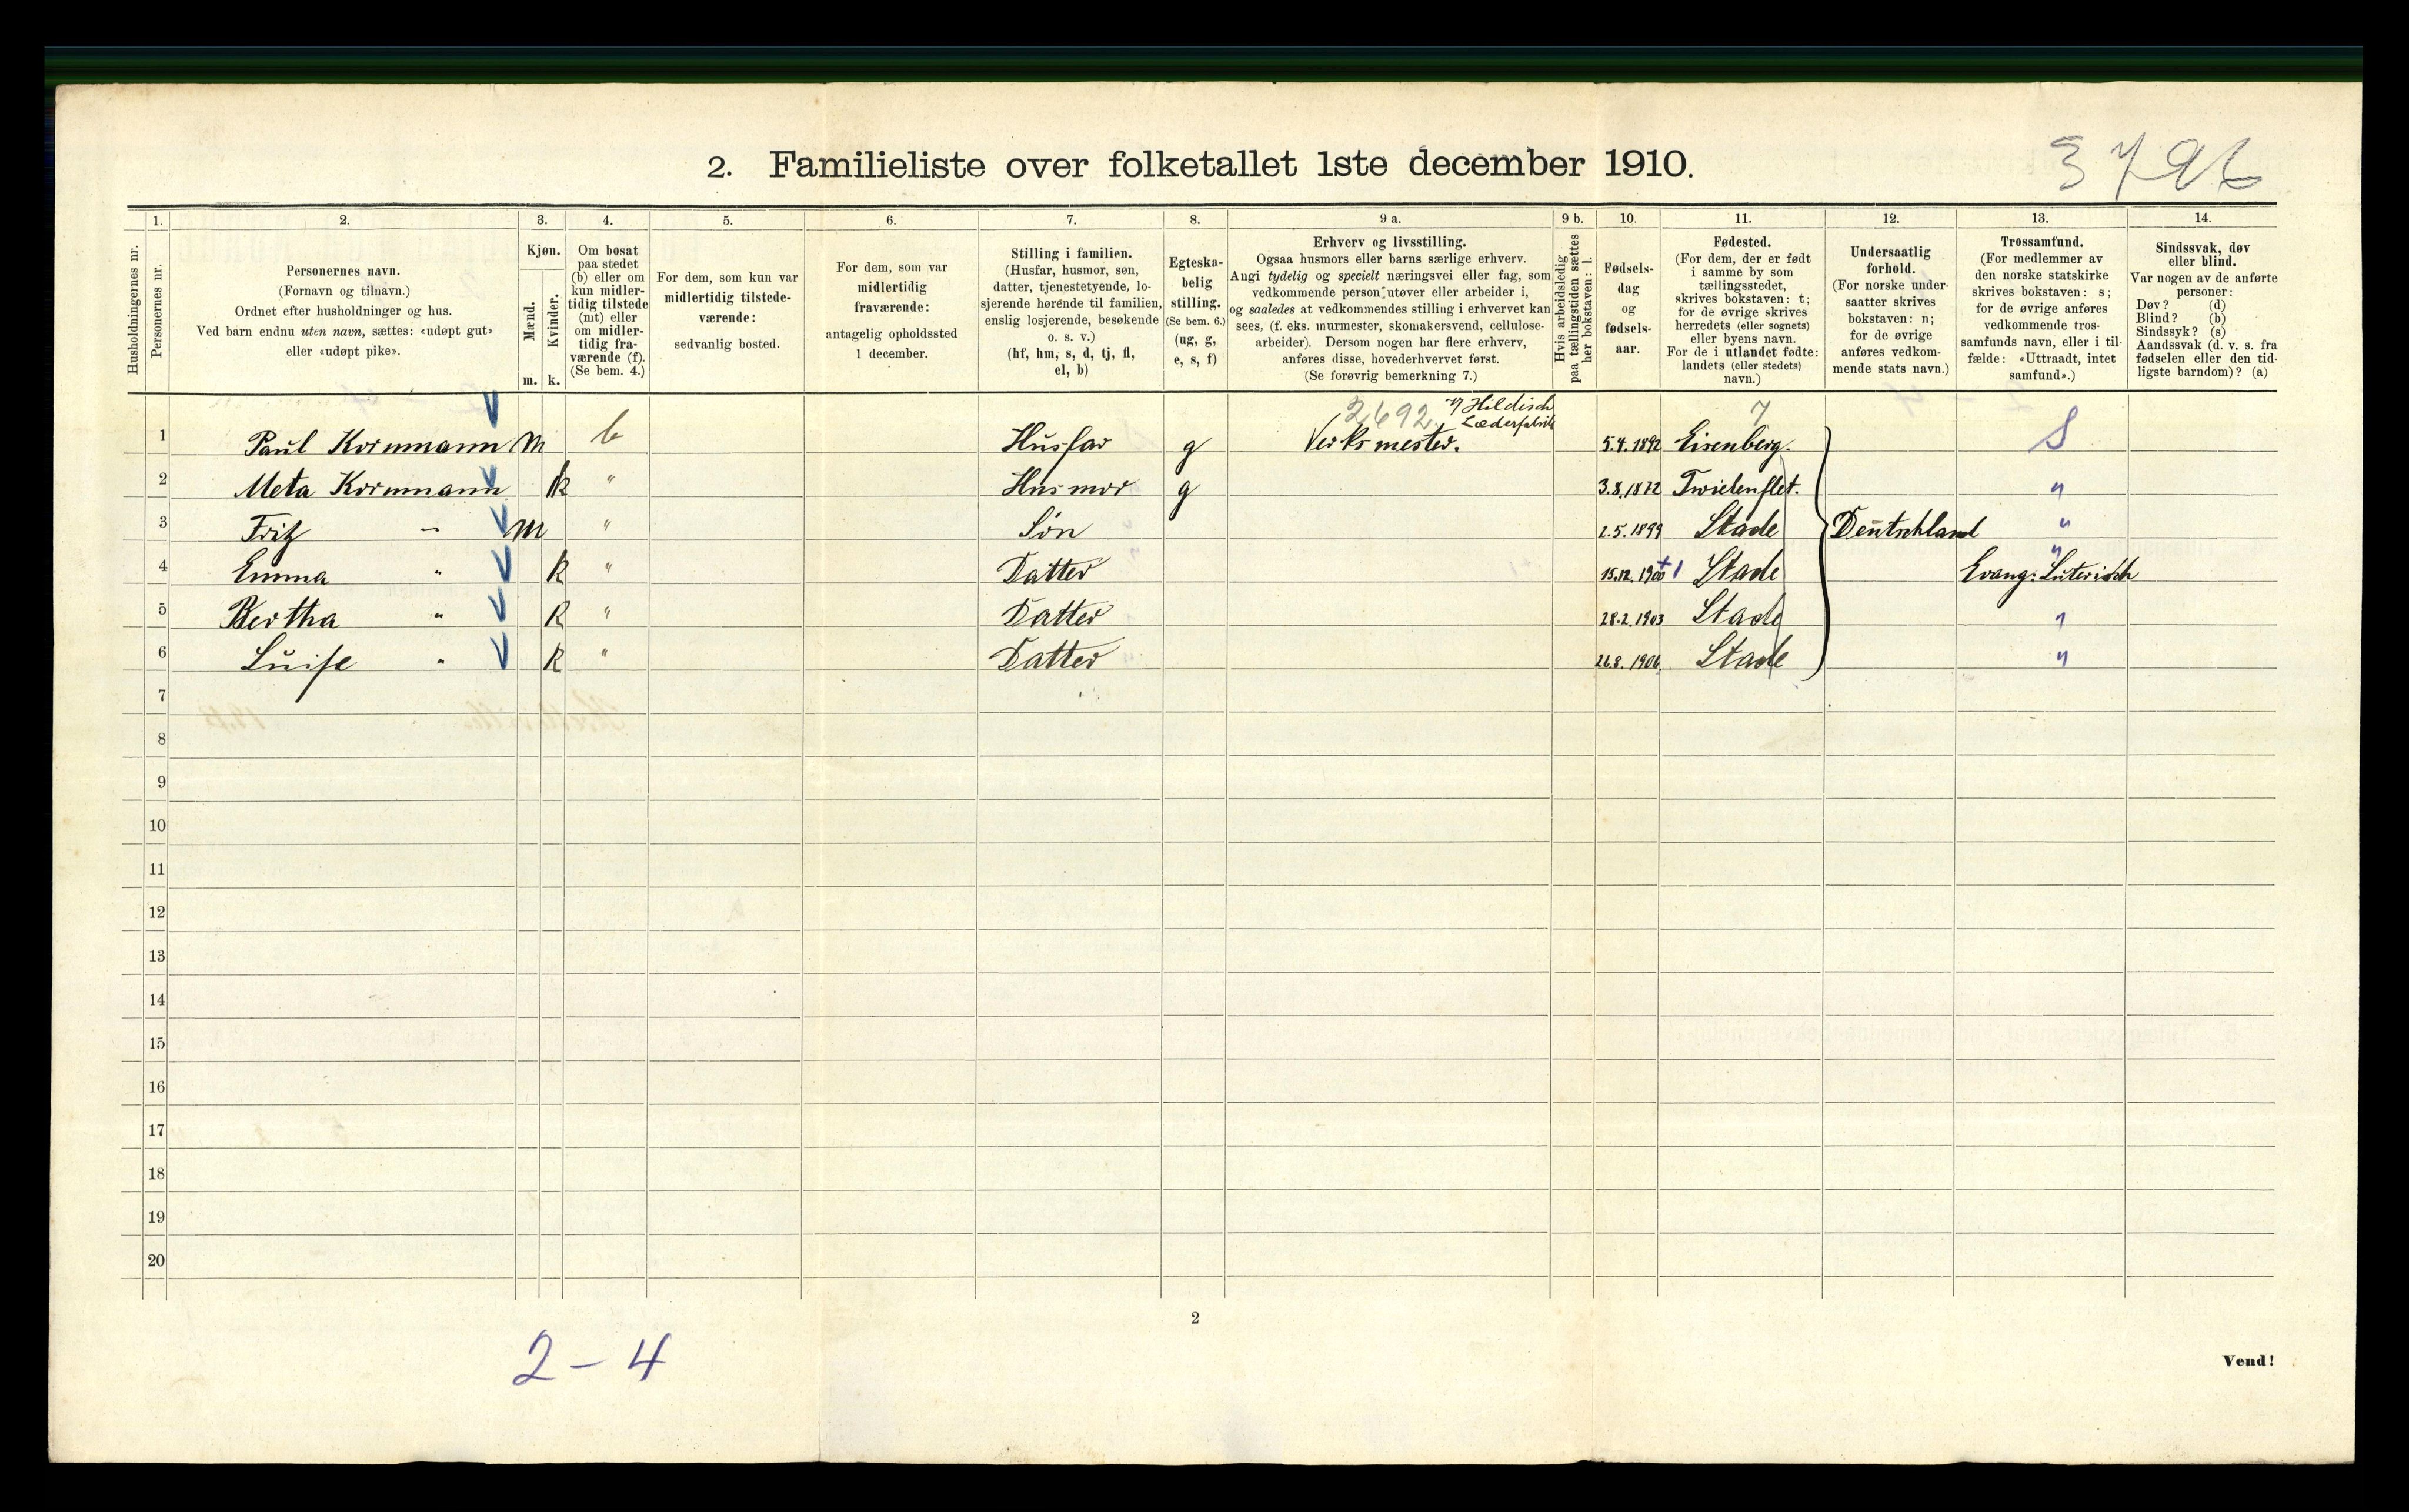 2. Familieliste over folketallet 1ste december 1910.
3796
1. 2. 3. 4. 5. 6. 7. 8. 9 a. 9 b. 10. 11. 12. 13. 14.
Husholdningernes nr.
Personernes nr.
Personernes navn.
(Fornavn og tilnavn.)
Ordnet efter husholdninger og hus.
Ved barn endnu uten navn, sættes: «udøpt gut»
eller «udøpt pike».
Kjøn.
Mænd.
Kvinder.
m. k.
Om bosat
paa stedet
(b) eller om
kun midler-
tidig tilstede
(mt) eller
om midler-
tidig fra-
værende (f).
(Se bem. 4.)
For dem, som kun var
midlertidig tilstede-
værende:
sedvanlig bosted.
For dem, som var
midlertidig
fraværende:
antagelig opholdssted
1 december.
Stilling i familien.
(Husfar, husmor, søn,
datter, tjenestetyende, lo-
sjerende hørende til familien,
enslig losjerende, besøkende
o. s. v.)
(hf, hm, s, d, tj, fl,
el, b)
Egteska-
belig
stilling.
(Se bem. 6.)
(ug, g,
e, s, f)
Erhverv og livsstilling.
Ogsaa husmors eller barns særlige erhverv.
Angi tydelig og specielt næringsvei eller fag, som
vedkommende person utøver eller arbeider i,
og saaledes at vedkommendes stilling i erhvervet kan
sees, (f. eks. murmester, skomakersvend, cellulose-
arbeider). Dersom nogen har flere erhverv,
anføres disse, hovederhvervet først.
(Se forøvrig bemerkning 7.)
Hvis arbeidsledig
paa tællingstiden sættes
her bokstaven: l.
Fødsels-
dag
og
fødsels-
aar.
Fødested.
(For dem, der er født
i samme by som
tællingsstedet,
skrives bokstaven: t;
for de øvrige skrives
herredets (eller sognets)
eller byens navn.
For de i utlandet fødte:
landets (eller stedets)
navn.)
Undersaatlig
forhold.
(For norske under-
saatter skrives
bokstaven: n;
for de øvrige
anføres vedkom-
mende stats navn.)
Trossamfund.
(For medlemmer av
den norske statskirke
skrives bokstaven: s;
for de øvrige anføres
vedkommende tros-
samfunds navn, eller i til-
fælde: «Uttraadt, intet
samfund».)
Sindssvak, døv
eller blind.
Var nogen av de anførte
personer:
Døv? (d)
Blind? (b)
Sindssyk? (s)
Aandssvak (d. v. s. fra
fødselen eller den tid-
ligste barndom)? (a)
2692 v/ Hildisch 7
Læderfabrik
1 Paul Kornmann m b Husfar g Verksmester. 5.4.1892 Eisenberg. S
2 Meta Kornmann k " Husmor g 3.8.1872 Twielenflet. "
3 Fritz - m " Sön 2.5.1899 Stade Deutschland "
4 Emma " k " Datter 15.12.1900 + 1 Stade " Evang. Luterisch
5 Bertha " k " Datter 28.2.1903 Stade "
6 Luise " k " Datter 26.8.1906 Stade "
7
8
9
10
11
12
13
14
15
16
17
18
19
20
2
2 - 4
Vend!